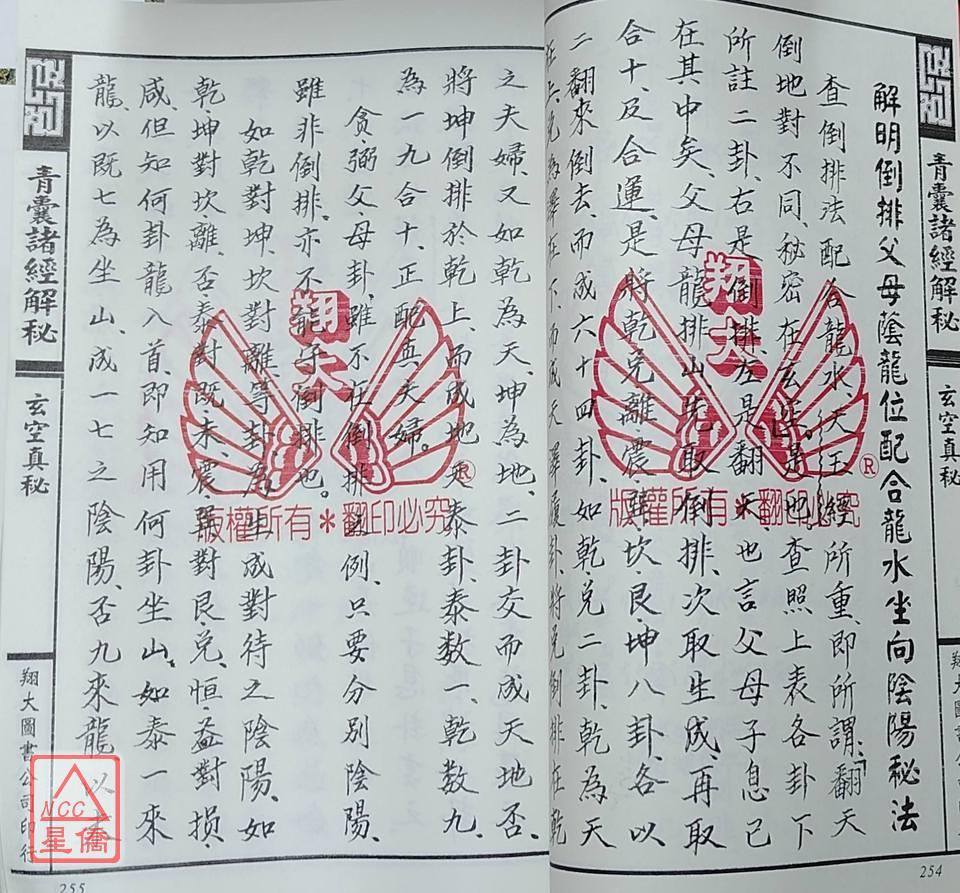 青囊諸經解秘
玄空真秘
254
解明倒排父母蔭龍位配合龍水坐向陰陽秘法
查倒排法配合龍水、天玉經所重、即所謂翻天
倒地對不同、秘密在玄空。是也、查照上表各卦下
所註二卦、右是倒排、左是翻天、也言父母子息已
在其中矣、父母龍排山、先取倒排、次取生成、再取
合十、及合運、是將乾兌離震巽坎艮坤八卦、各以
二翻來倒去、而成六十四卦、如乾兌二卦、乾為天
在上、兌為澤在下而成天澤履卦、將兌倒排在乾
之夫婦、又如乾為天、坤為地、二卦交而成天地否、
將坤倒排於乾上、而成地天泰卦、泰數一、乾數九、
為一九合十、正配真夫婦。
貪弼父母卦、雖不在倒排之例、只要分別陰陽、
雖非倒排、亦不能乎倒排也。
如乾對坤、坎對離等卦、為生成對待之陰陽、如
乾坤對坎離、否泰對既未、震巽對艮兌、恒益對損
咸、但知何卦龍入首、即知用何卦坐山、如泰一來
龍、以既七為坐山、成一七之陰陽、否九來龍以
青囊諸經解秘
玄空真秘
翔大圖書公司印行
255
翔大
®
版權所有*翻印必究
翔大
®
版權所有*翻印必究
NCC
星僑